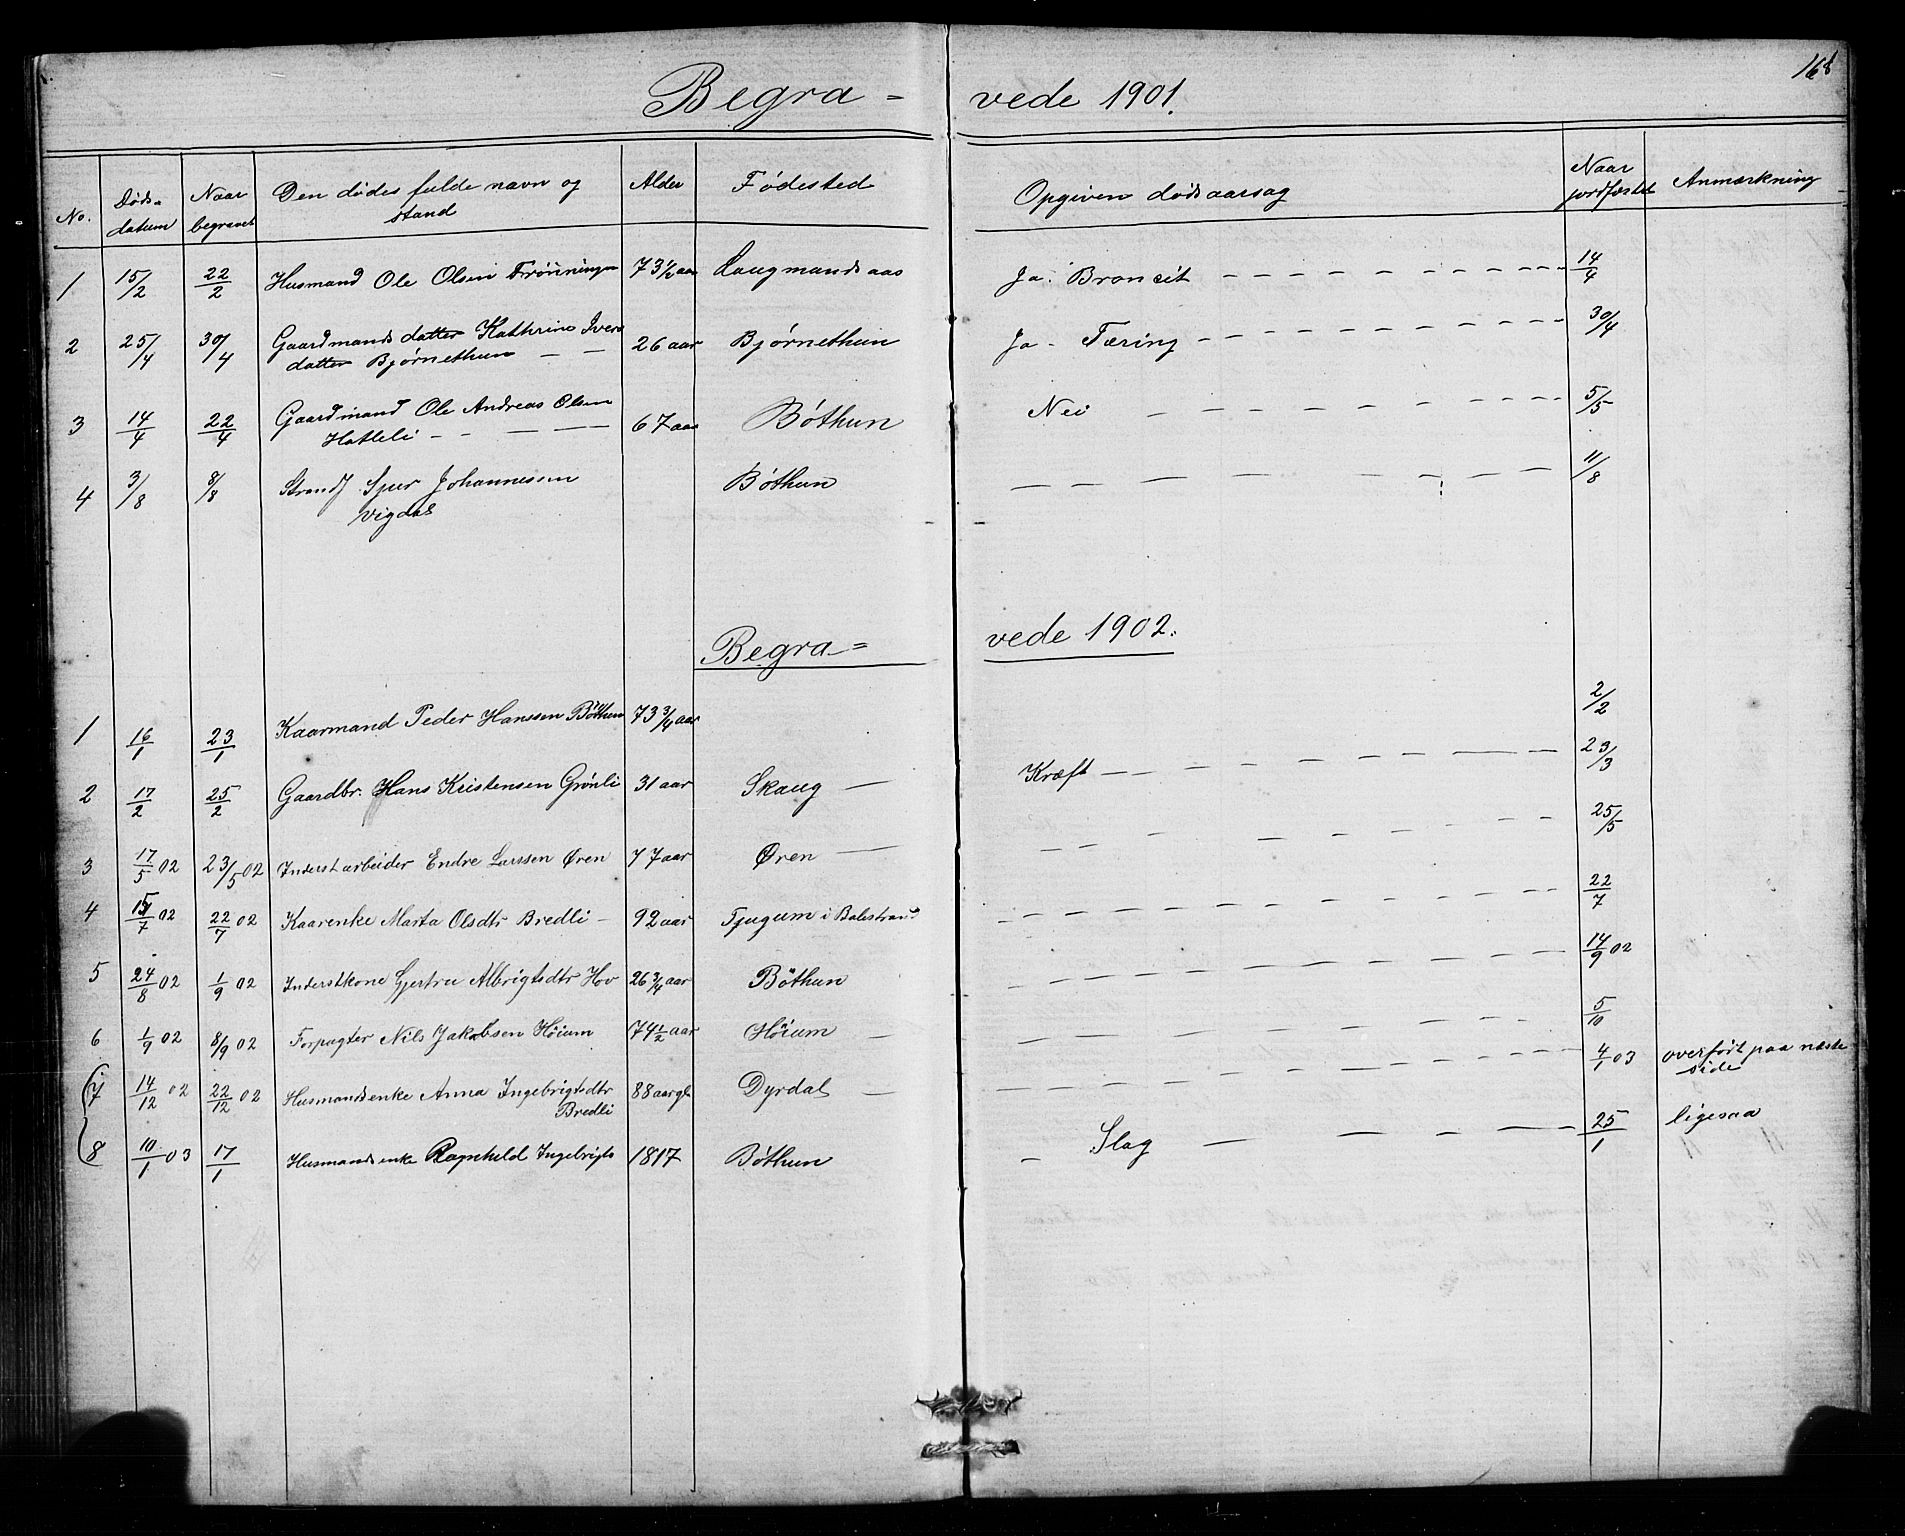 168
Begra- vede 1901.
No. Dødsdatum Naar begravet Den dødes fulde navn og stand Alder Fødested Opgiven dødsaarsag Naar jordfæstet Anmærkning
1 15/2 22/2 Husmand Ole Olsen Trønningen 73 1/2 aar Laugmandsaas Ja. Broncit 14/4
2 25/4 30/4 Gaardmandsdatter Kathrine Ivers
datter Bjørnethun 26 aar Bjørnethun Ja - Tæring 30/4
3 14/4 22/4 Gaardmand Ole Andreas Olsen
Hatleli 67 aar Bøthun Nei 5/5
4 3/8 8/8 Strandj Sjur Johannessen
Vigdal Bøthun 11/8
Begra= vede 1902.
1 16/1 23/1 Kaarmand Peder Hanssen Bøthun 73 3/4 aar 2/2
2 17/2 25/2 Gaardbr. Hans Kristensen Grønli 31 aar Skaug Kræft 23/3
3 17/5 02 23/5 02 Inderst arbeider Endre Larssen Øren 77 aar Øren 25/5
4 15/7 02 22/7 02 Kaarenke Marta Olsdtr Bredli 92 aar Tjugum i Balestrand 22/7
5 24/8 02 1/9 02 Inderstkone Gjertru Albrigtsdtr Hov 26 3/4 aar Bøthun 14/9 02
6 1/9 02 8/9 02 Forpagter Nils Jakobsen Høium 74 1/2 aar Høium 5/10
7 14/12 02 22/12 02 Husmandsenke Anna Ingebrigtsdtr
Bredli 88 aar gl Dyrdal 4/1 03 overført paa næste
side
8 10/1 03 17/1 Husmandsenke Ragnhild Ingebrigts 1817 Bøthun Slag 25/1 ligesaa